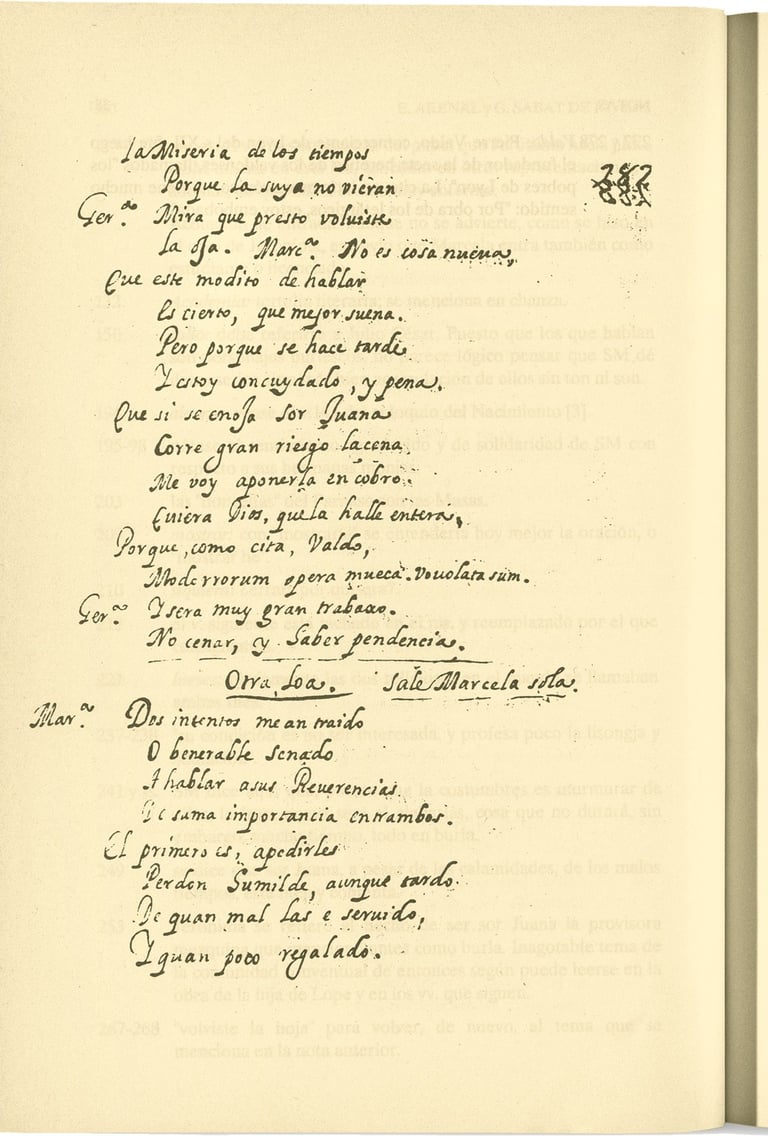 La Miseria de los tiempos
Porque la suya no vieran
282
Ger.ª Mira que presto voluiste
la oja. Marc.ª No es cosa nueva,
Que este modito de hablar
Es cierto, que mejor suena.
Pero porque se hace tarde
Y estoy concuydado, y pena.
Que si se enoja Sor Juana
Corre gran riesgo lacena
Me voy aponerla en cobro.
Quiera Dios, quela halle entera,
Porque, como cita, Valdo,
Moderrorum opera mueca. vouolata sum.
Ger.ª Ysera muy gran trabaxo.
No cenar, y Saber pendencia.
Otra Loa. Sale Marcela sola.
Mar.ª Dos intentos mean traido
O benerable Senado
A hablar asus Reverencias
De suma importancia entrambos.
El primero es, apedirles
Perdon Humilde, aunque tardo.
De quan mal las e seruido,
Y quan poco regalado.